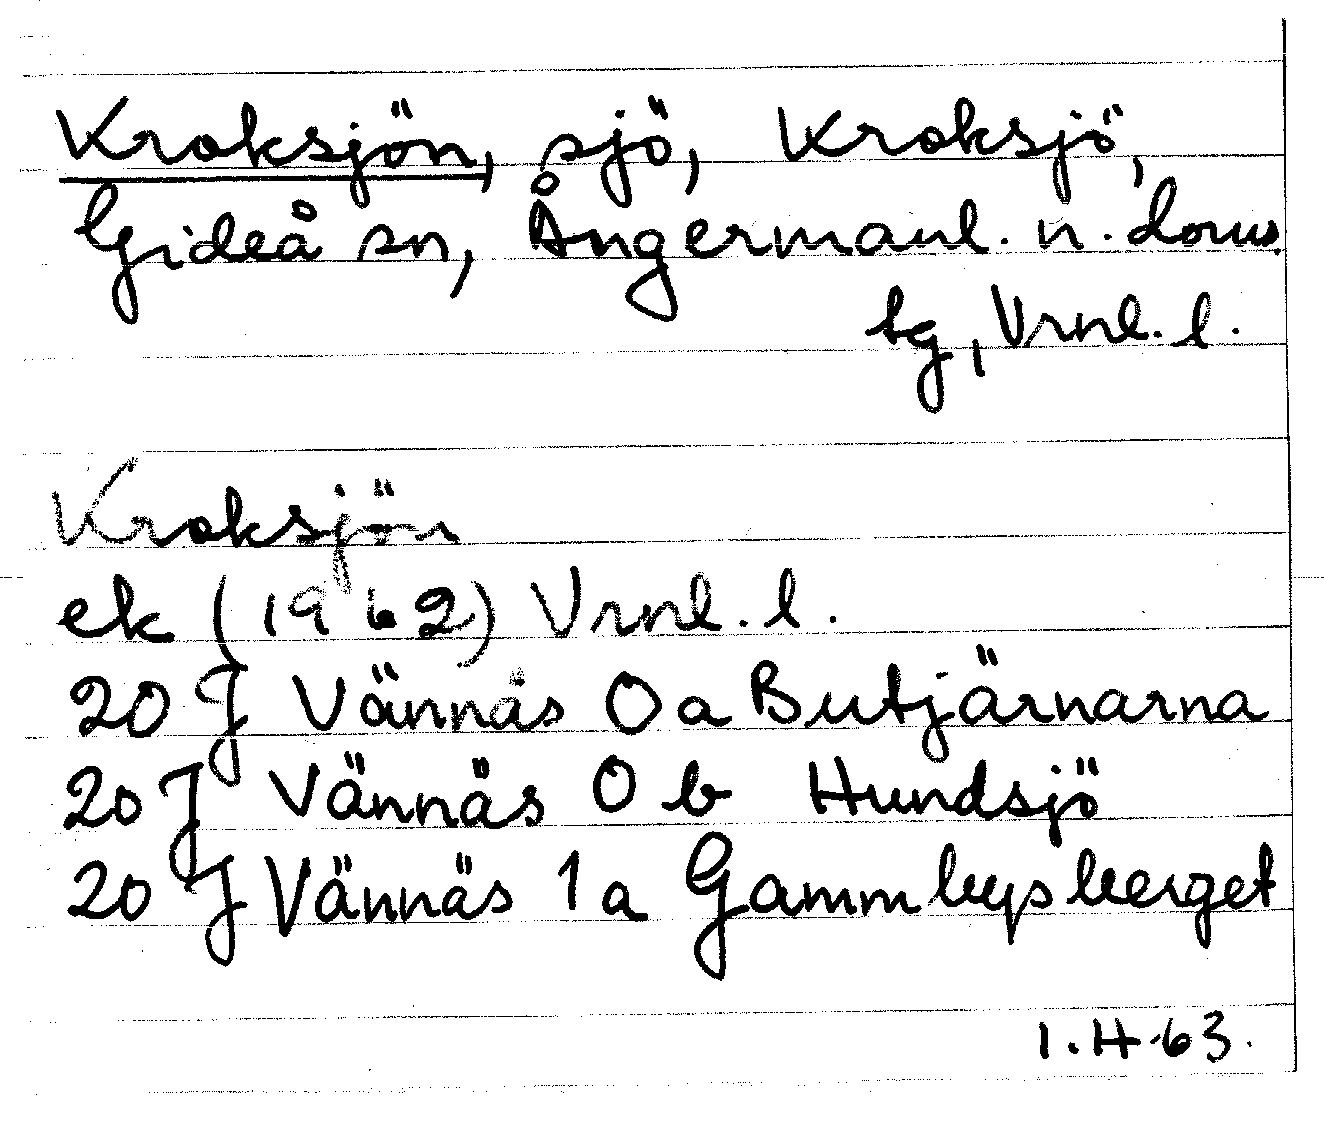 Kroksjön, sjö, Kroksjö,
Gideå sn, Ångermanl. n. doms
tg, Vrnl. l.
Kroksjön
ek (1962) Vrnl. l.
20 J Vännäs 0 a Butjärnarna
20 J Vännäs 0 b Hundsjö
20 J Vännäs 1 a Gammbysberget
1.H.63.